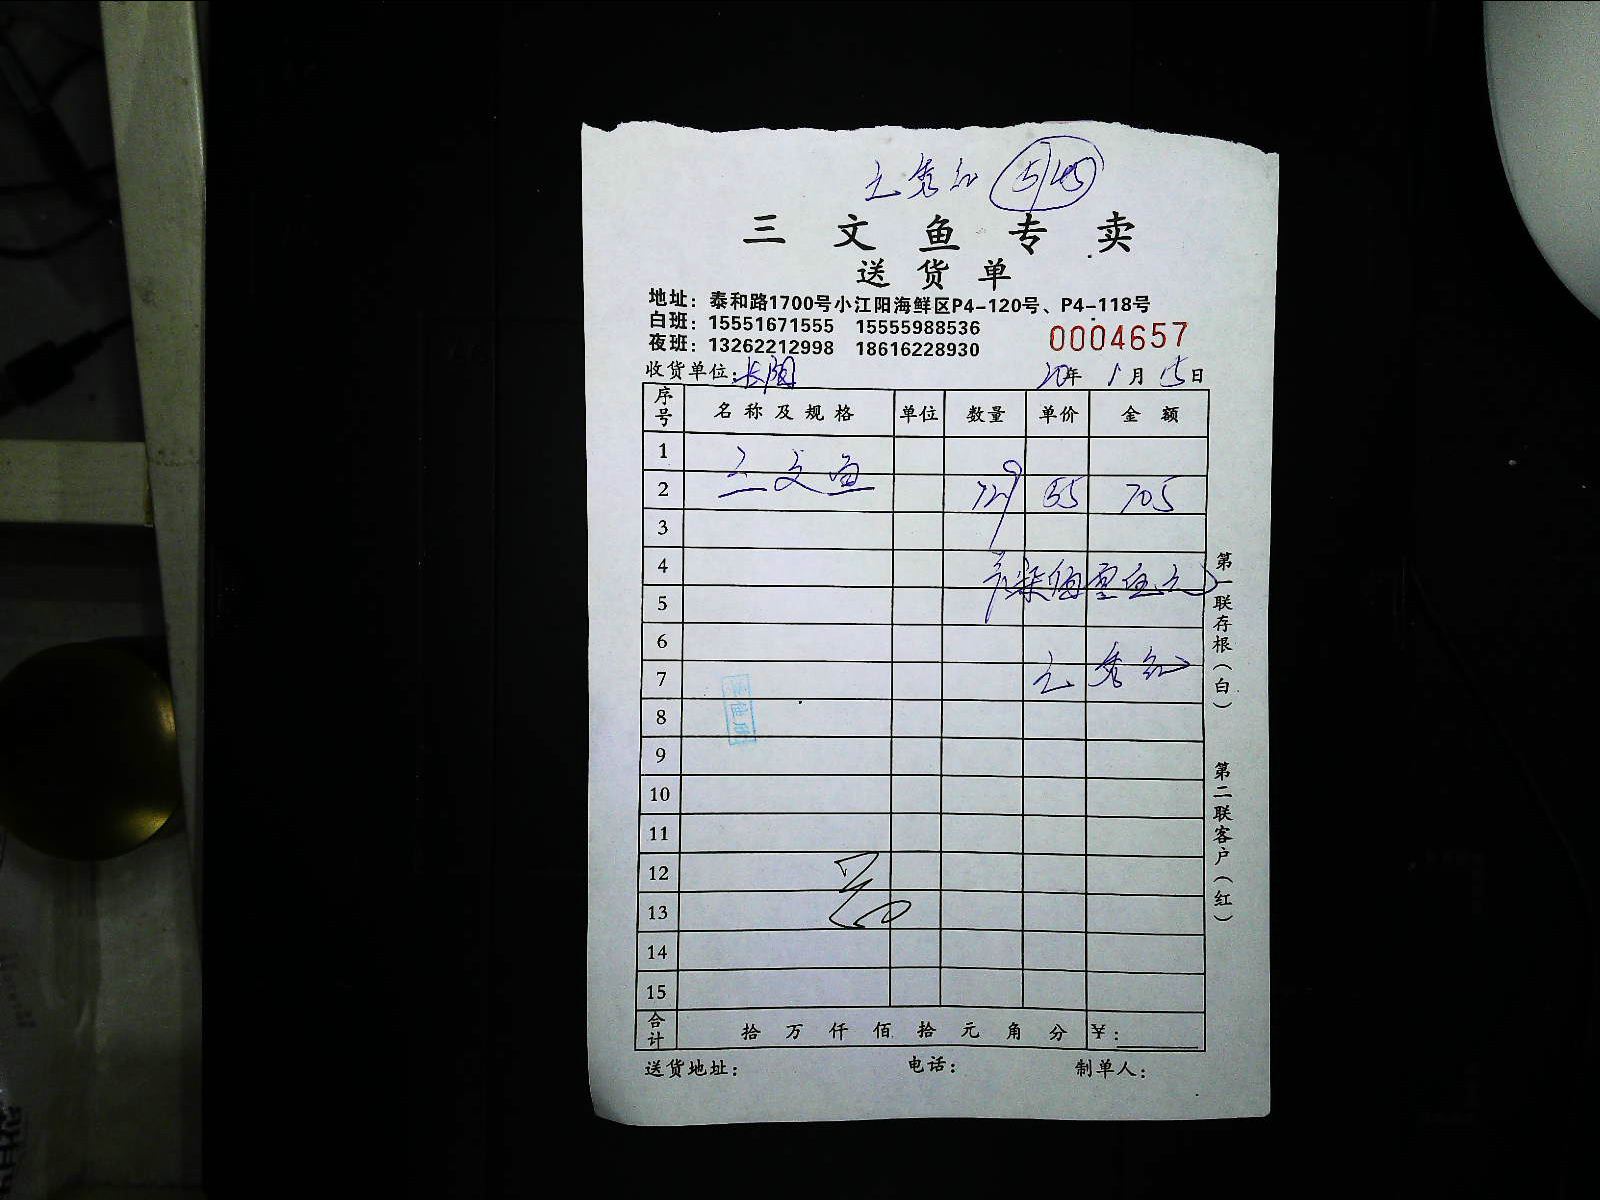 三文鱼专卖
送货单
地址：泰和路1700号小江阳海鲜区P4-120号、P4-118号
白班：15551671555 15555988536
夜班：13262212998 18616228930
0004657
收货单位：长阳 20年1月15日
序号 名称及规格 单位 数量 单价 金额
1
2 三文鱼 55 705
3
4
5
6
7
8
9
10
11
12
13
14
15
合计 拾万仟佰拾元角分 ¥：
送货地址： 电话： 制单人：
第一联存根（白）
第二联客户（红）